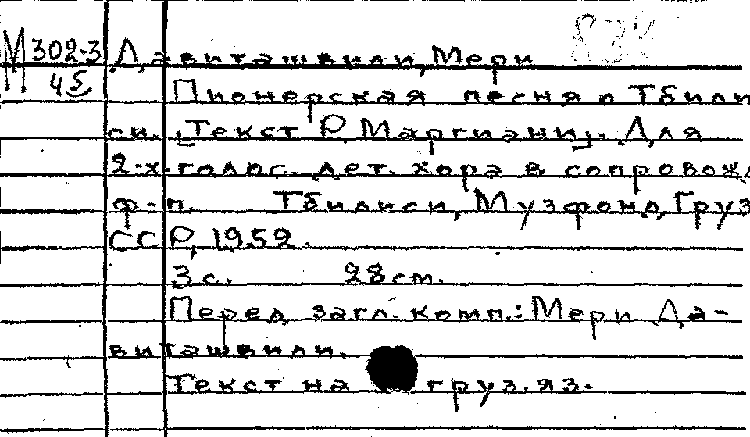 М 302-3 Давиташвили, Мери
45 Пионерская песня о Тбили
си. [Текст Р. Маргиани]. Для
2-х голос. дет. хора в сопровожд.
ф-п. Тбилиси, Музфонд Груз
ССР, 1952.
3 с. 28 см.
Перед загл. комп.: Мери Да-
виташвили.
Текст на груз. яз.